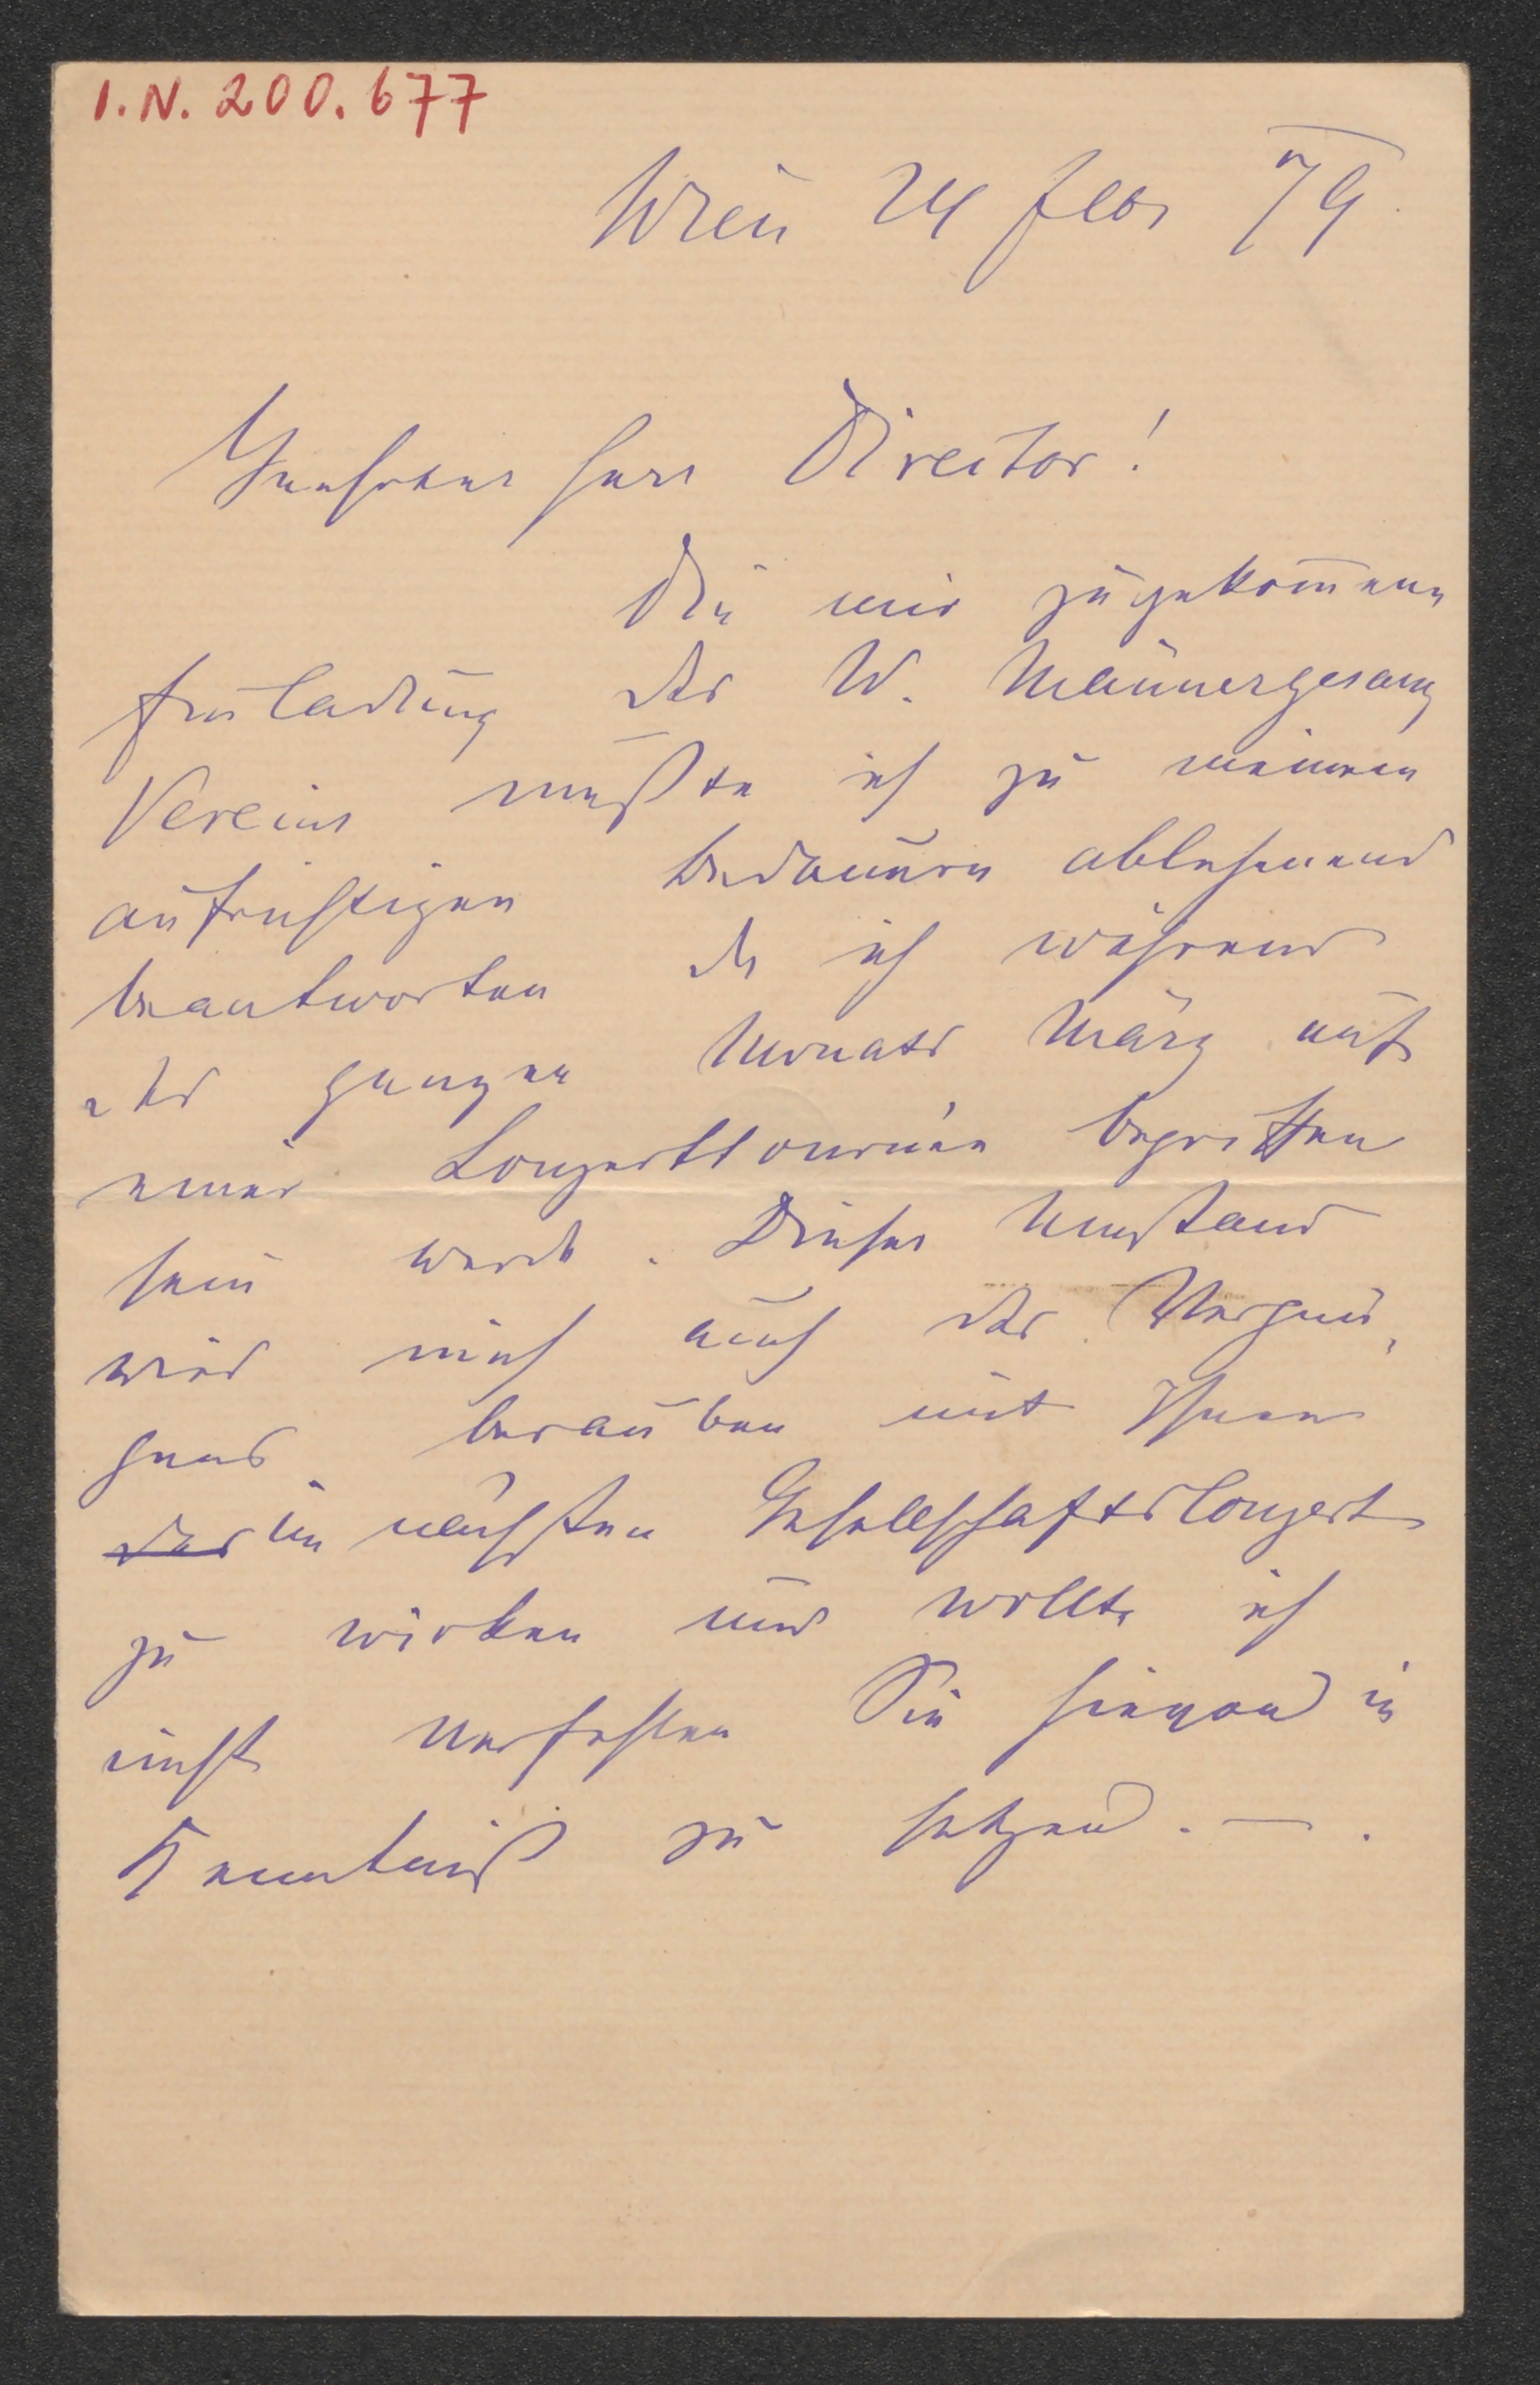 I.N. 200.677
Wien 24 Febr 79
Geehrter Herr Director!
Die mir zugekom̅ene
Einladung des W. Männergesang
Vereins mußte ich zu meinem
aufrichtigen Bedauern ablehnend
beantworten da ich während
des ganzen Monats März auf
einer Conzerttournée begriffen
sein werde. Dieser Umstand
wird mich auch des Vergnü¬
gens berauben mit Ihnen
der im nächsten Gesellschaftsconzert
zu wirken und wollte ich
nicht verfehlen Sie hievon in
Kenntniß zu setzen. — .